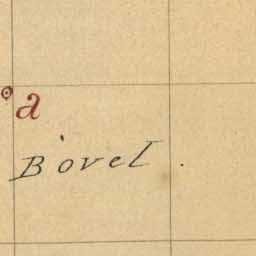 a
Bovel.